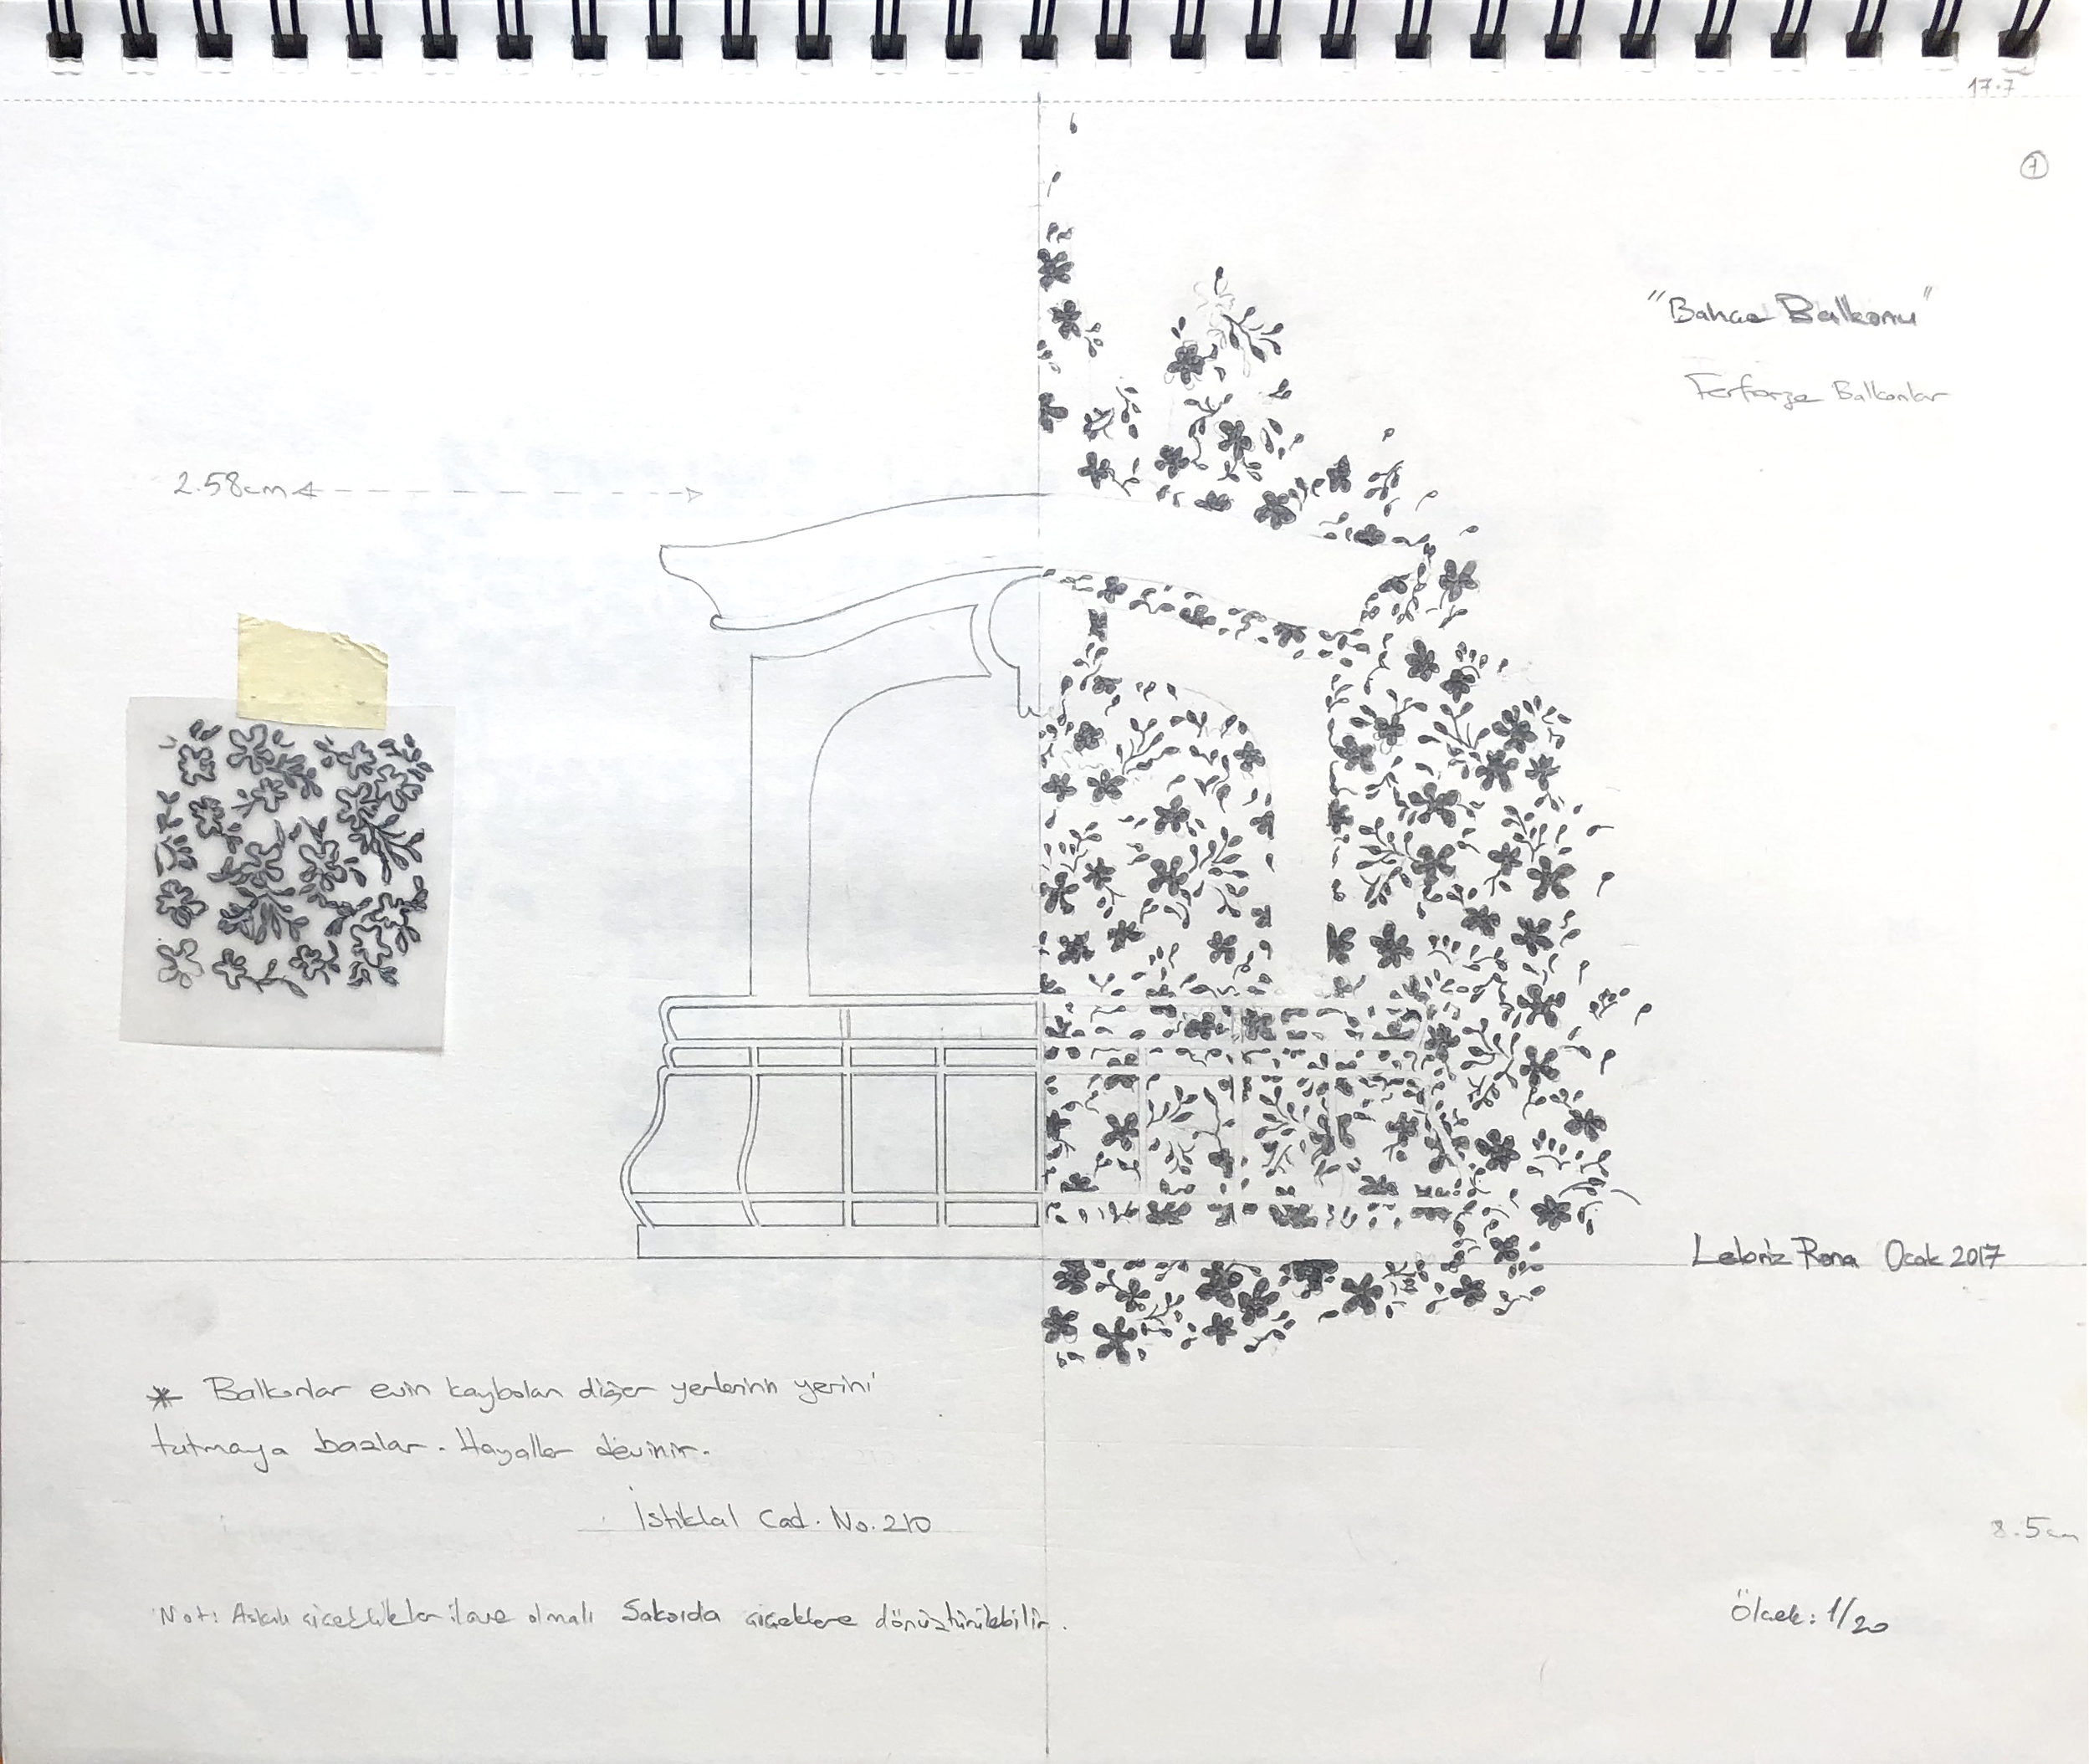 17.7
1
"Bahçe Balkonu"
Ferforje Balkonlar
2.58cm
Lebriz Rona Ocak 2017
* Balkonlar evin kaybolan diğer yerlerinin yerini
tutmaya başlar. Hayaller devinir.
İstiklal Cad. No. 210
8.5cm
Not: Askılı çiçeklikler ilave olmalı Saksıda çiçeklere dönüştürülebilir.
Ölçek: 1/20